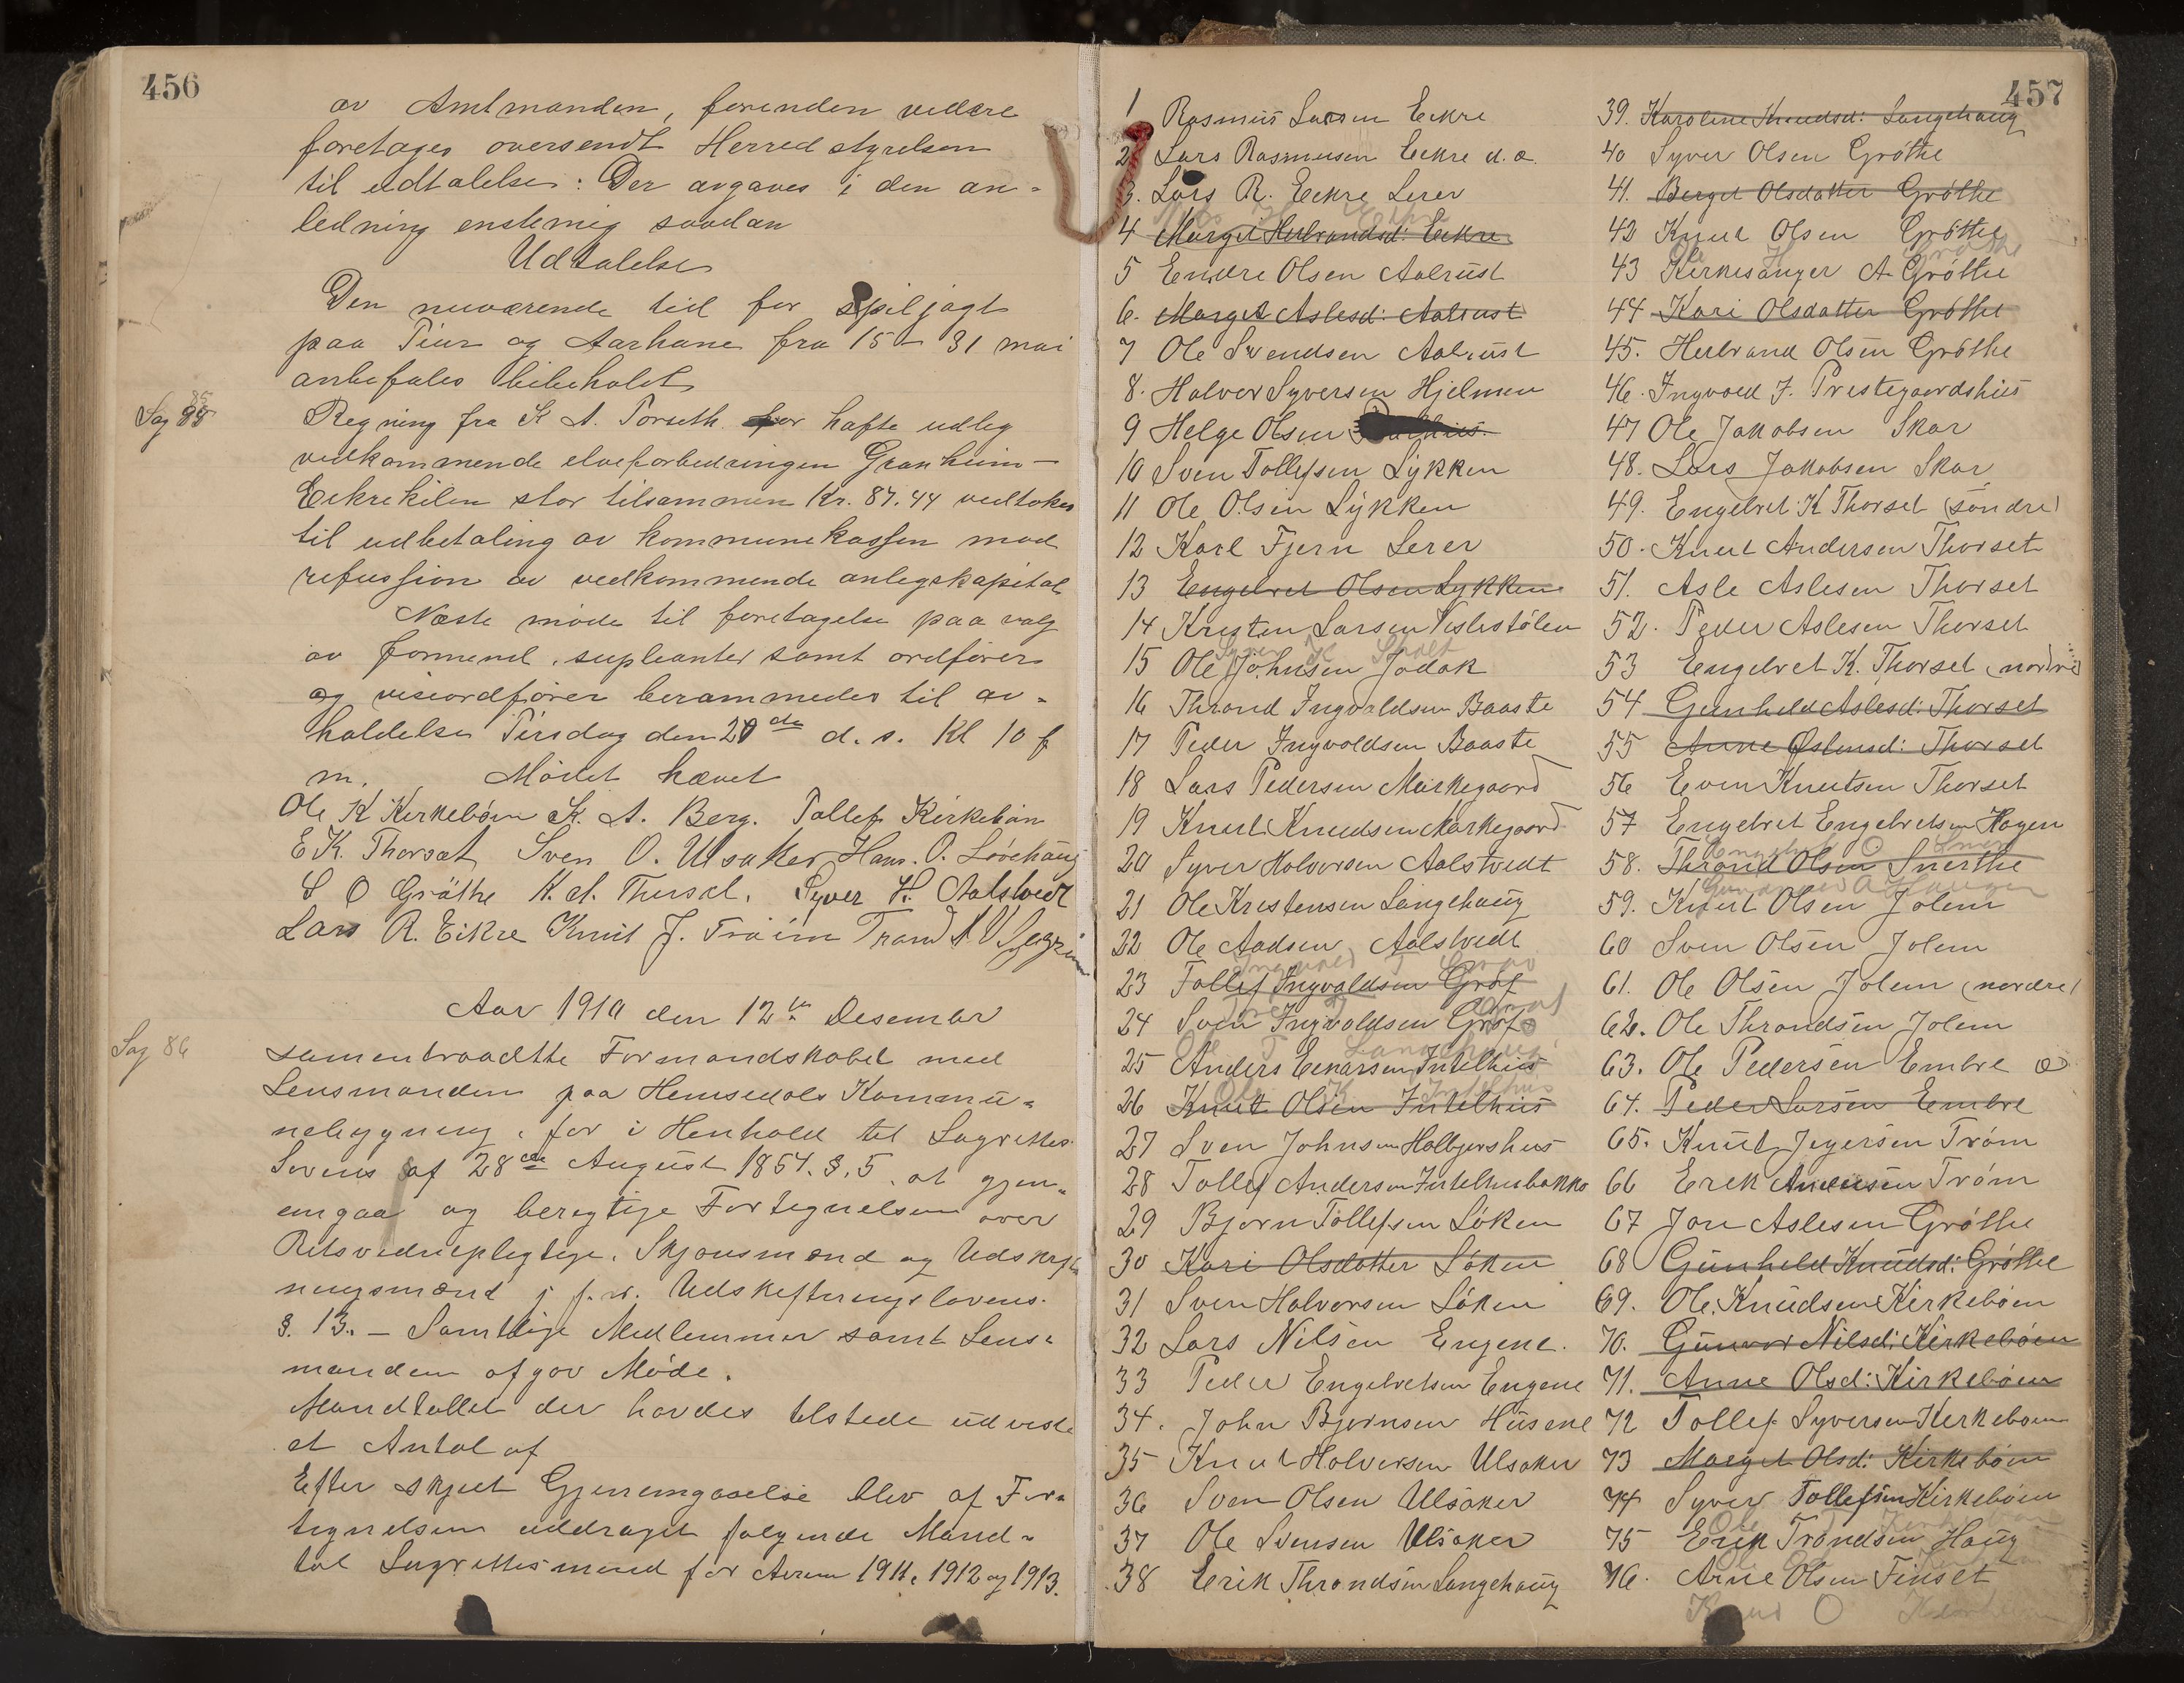 456
av Amtmanden, forenden videre
foretages oversendt Herredstyrelsen
til udtalelse: Der avgaves i den an-
ledning enstemig saadan
Udtalelse
Den nuværende tid for spiljagt
paa Tiur og Aarhane fra 15 - 31 mai
anbefales bibeholdt
Sag 85
Regning fra K A. Torseth for hafte udleg
vedkommende elveforbedringen Granheim-
Eikrekilen stor tilsammen Kr. 87.44 vedtokes
til udbetaling av kommunekassen mod
refussion av vedkommende anlegskapital
Næste møde til foretagelse paa valg
av formend, supleanter samt ordfører
og viseordfører berammedes til av-
holdelse Tirsdag den 20de d. s. Kl 10 f
m. Mødet hævet
Ole K Kirkebøen K. A. Berg. Tollef Kirkebøn
E K. Thorset Sven O. Ulsaker Hans. O. Løvehaug
S O Grøthe K. A. Thorset. Syver H. Aalstvedt
Lars R. Eikre Knut J. Trøim Trond
Aar 1910 den 12te Desember
Sag 86
samentraadte Formandskabet med
Lensmanden paa Hemsedals Kommu-
nebygning, for i Henhold til Lagrettes
Lovens af 28de August 1854. §. 5, at gjen-
emgaa og berigtige Fortegnelsen over
Retsvidnepligtige, Skjønsmænd og Udskift-
ningsmænd j f.r. Udskiftningslovens
§. 13. - Samtlige Medlemmer samt Lens-
manden afgav Møde.
Mandtallet der havdes tilstede udviste
et Antal af
Efter skjeet Gjenemgaaelse blev af For-
tegnelsen uddraget følgende Mand-
tal Lagrettesmænd for Aarene 1911, 1912 og 1913.
457
1 Rasmus Larsen Eikre
2 Lars Rasmusen Eikre d. æ.
3. Lars R. Eikre Lerer
4 Margit Herbrandsd: Eekre
5 Endre Olsen Aalrust
6. Margit Aslesd: Aalrust
7 Ole Svendsen Aalrust
8. Halvor Syversen Hjelmen
9 Helge Olsen
10 Sven Tollefsen Lykken
11 Ole Olsen Lykken
12 Karl Fjern Lerer
13 Engebret Olsen Lykken
14 Kresten Larsen Veslestølen
15 Ole Johnsen Jodok
16 Thrond Ingvaldsen Baaste
17 Peder Ingvoldsen Baaste
18 Lars Pedersen Markegaard
19 Knut Knudsen Markegaard
20 Syver Halvorsen Aalstvedt
21 Ole Kristensen Langehaug
22 Ole Aadsen Aalstvedt
23 Tollef Ingvaldsen Grøf
24 Sven Ingvoldsen Grøf
25 Anders Einarsen Intelhus
26 Knut Olsen Intelhus
27 Sven Johnsen Holbjørshus
28 Tollef Andersen Intelhusbakke
29 Bjørn Tollefsen Løken
30 Kari Olsdatter Løken
31 Sven Halvorsen Løken
32 Lars Nilsen Engene.
33 Peder Engebretsen Engene
34. John Bjørnsen Husene
35 Knut Halvorsen Ulsaker
36 Sven Olsen Ulsaker
37 Ole Svensen Ulsaker
38 Erik Throndsen Langehaug
39. Karoline Knudsd: Langehaug
40 Syver Olsen Grøthe
41. Berget Olsdatter Grøthe
42 Knut Olsen Grøthe
43 Kirkesanger A Grøthe
44 Kari Olsdatter Grøthe
45. Herbrand Olsen Grøthe
46. Ingvald J. Prestegaardshus
47 Ole Jakobsen Skar
48. Lars Jakobsen Skar
49. Engebret K Thorset (søndre)
50. Knut Andersen Thorset
51. Asle Aslesen Thorset
52. Peder Aslesen Thorset
53 Engebret K. Thorset (nordre)
54 Gunhild Aslesd: Thorset
55 Anne Østensd: Thorset
56 Even Knutsen Thorset
57 Engebret Engebretsen Hagen
58. Thrond Olsen Snerthe
59. Knut Olsen Jølem
60 Sven Olsen Jølem
61. Ole Olsen Jølem (nordre)
62. Ole Throndsen Jølem
63. Ole Pedersen Embre
64. Peder Larsen Embre
65. Knut Jegersen Trøm
66 Erik Andersen Trøm
67 Jon Aslesen Grøthe
68 Gunhild Knudsd: Grøthe
69. Ole Knudsen Kirkebøen
70. Gunvor Nilsd: Kirkebøen
71. Anne Olsd: Kirkebøen
72 Tollef Syversen Kirkebøen
73 Marget Olsd: Kirkebøen
74 Syver Tollefsen Kirkebøen
75 Erik Trondsen Haug
76. Arne Olsen Finset